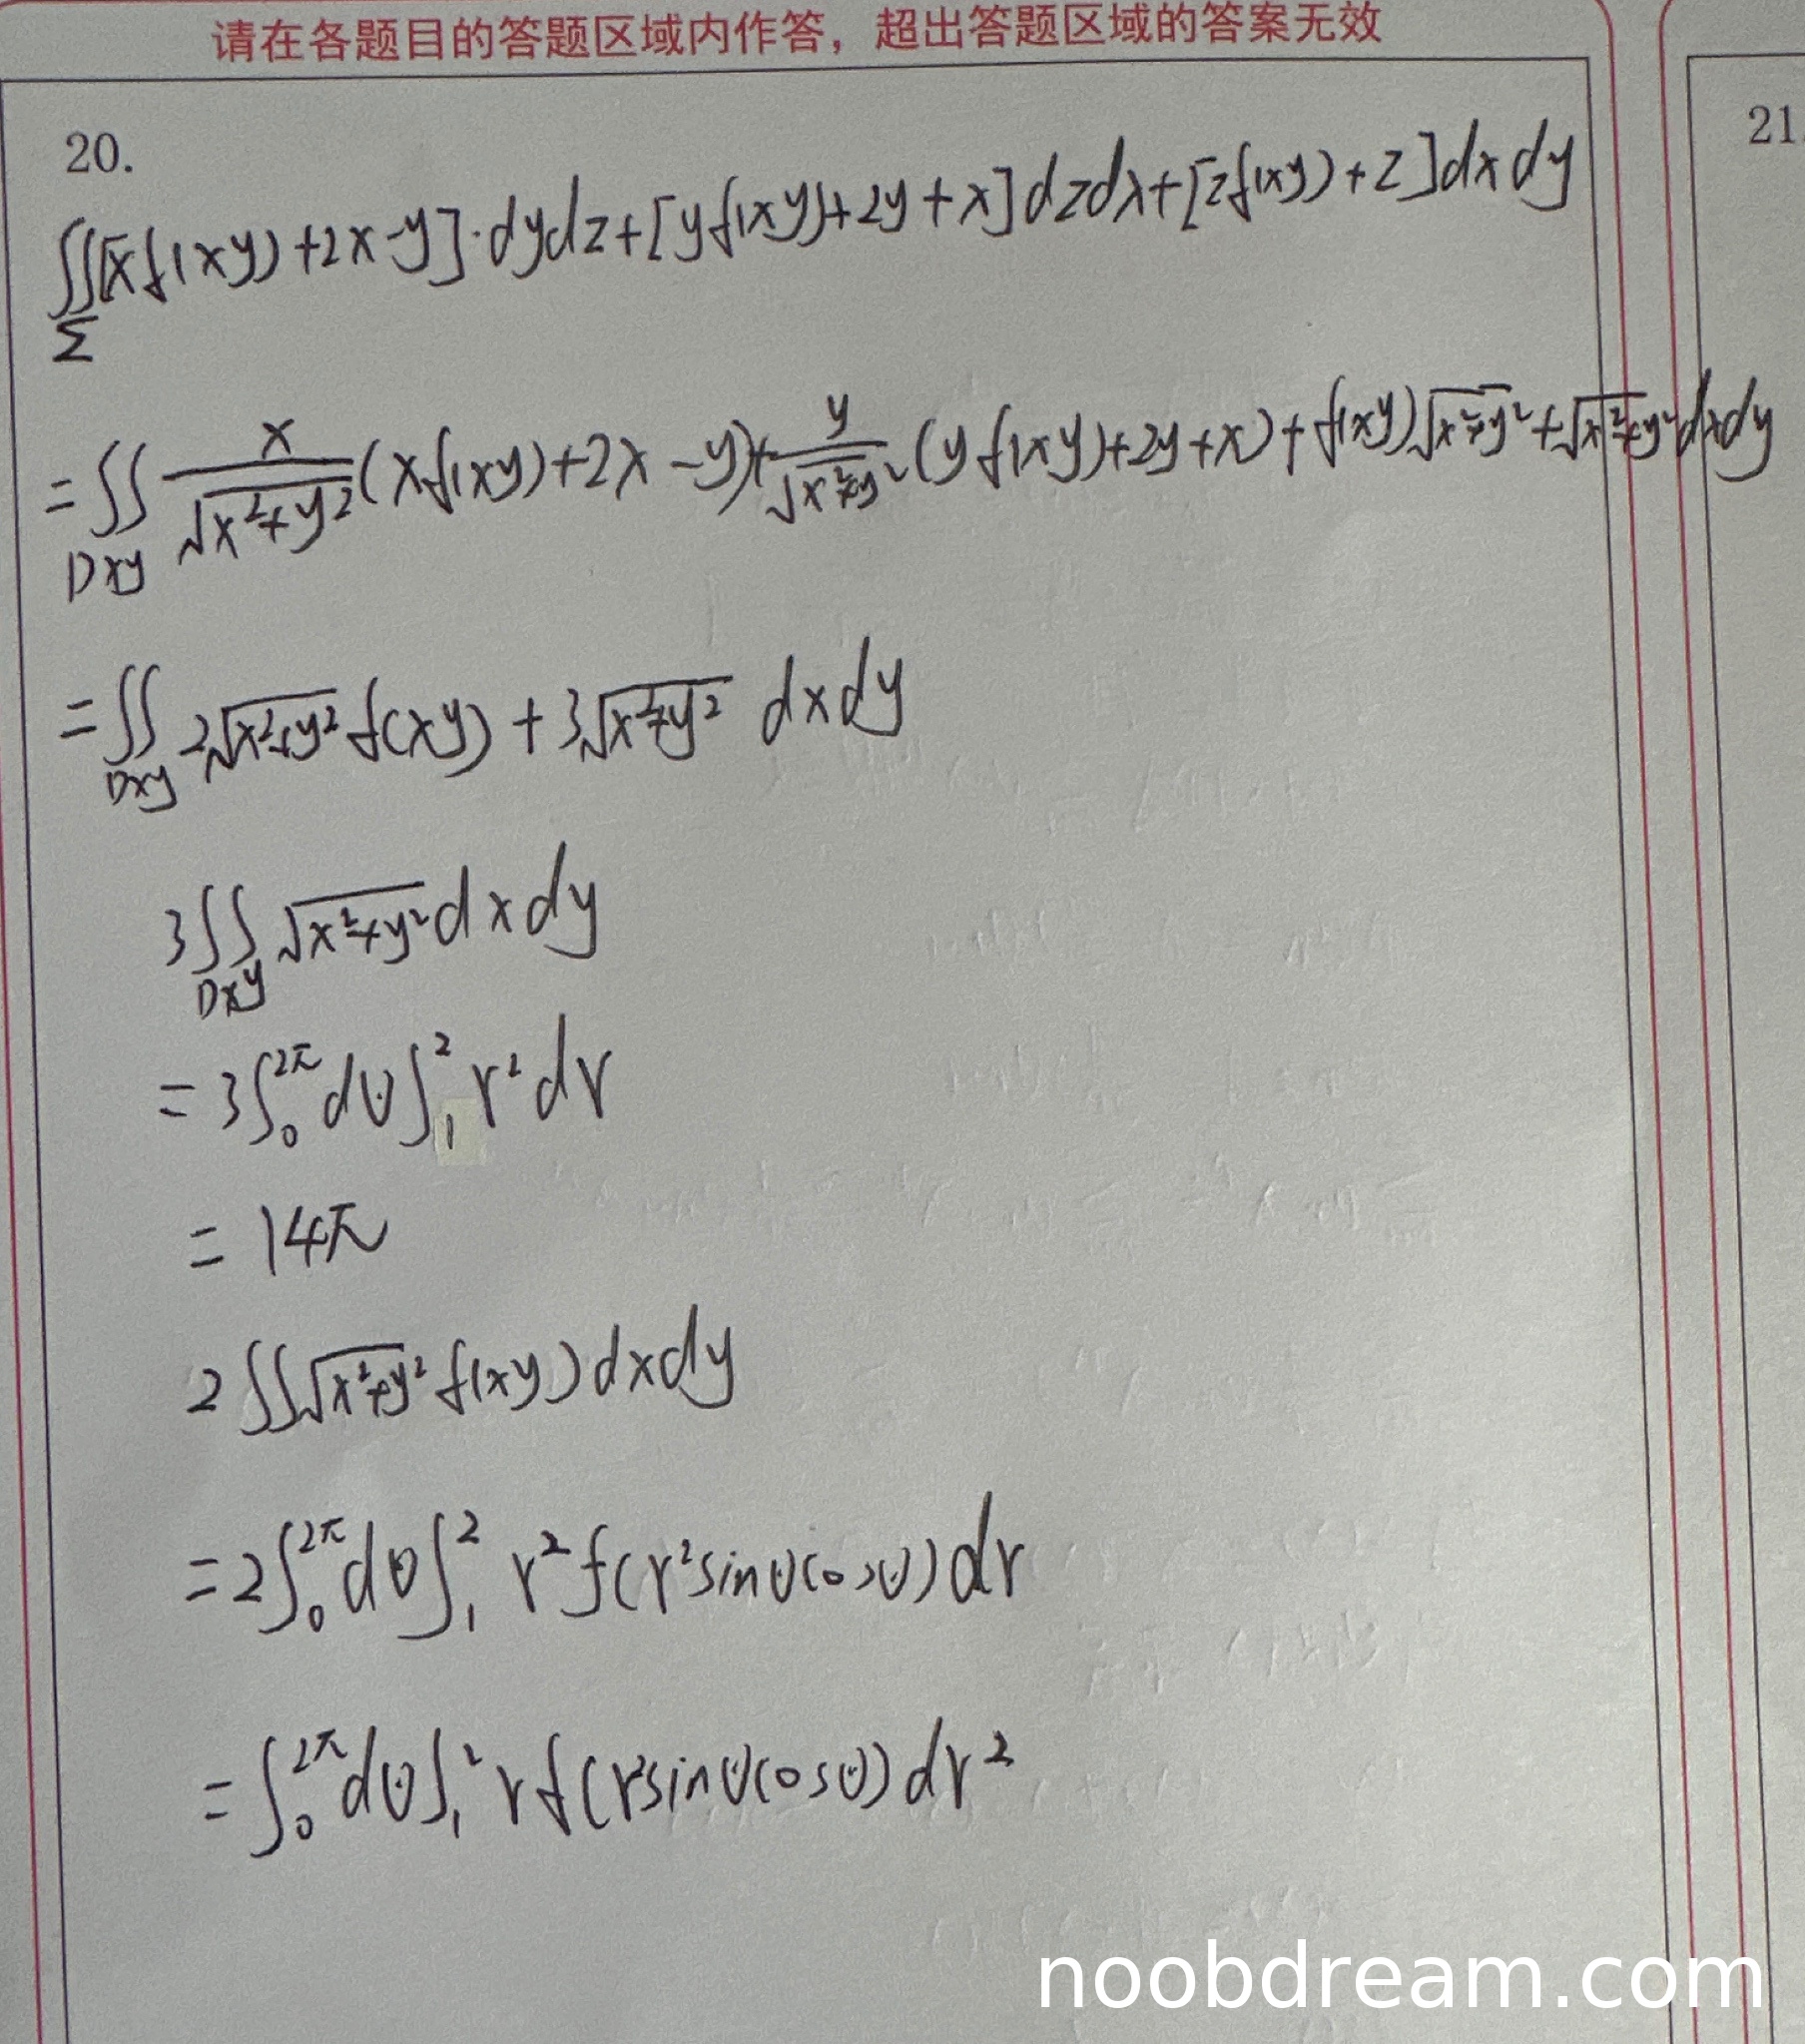 请在各题目的答题区域内作答，超出答题区域的答案无效
20.
21.
∬_Σ[xf(xy)+2x-y]·dydz+[yf(xy)+2y+x]dzdx+[zf(xy)+z]dxdy
=∬_Dxy x/√(x²+y²)(xf(xy)+2x-y)+y/√(x²+y²)(yf(xy)+2y+x)+f(xy)√(x²+y²)+√(x²+y²)dxdy
=∬_Dxy 2√(x²+y²)f(xy)+3√(x²+y²) dxdy
3∬_Dxy √(x²+y²)dxdy
=3∫₀^2π dθ∫₁² r²dr
=14π
2∬√(x²+y²)f(xy)dxdy
=2∫₀^2π dθ∫₁² r²f(r²sinθcosθ)dr
=∫₀^2π dθ∫₁² rf(r²sinθcosθ)dr²
noobdream.com